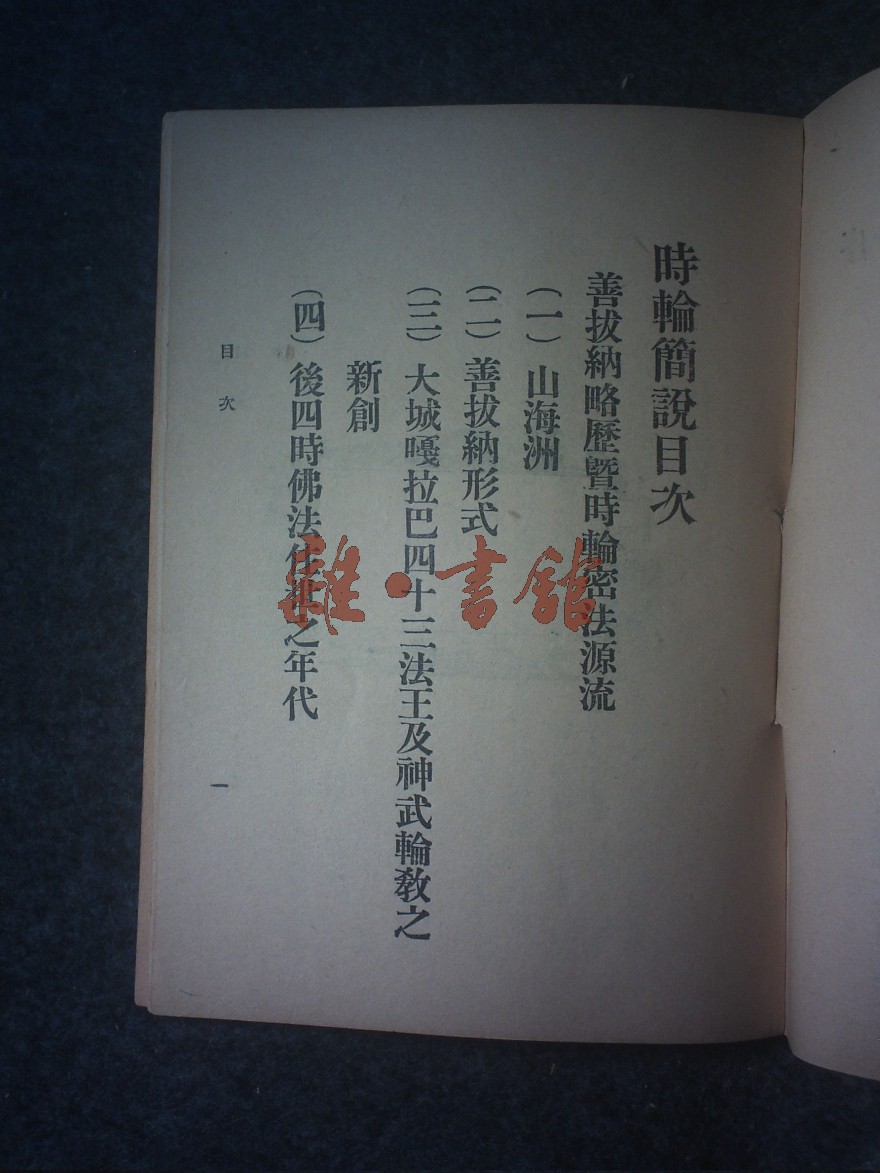 時輪簡說目次
善拔納略歷暨時輪密法源流
(一) 山海洲
(二) 善拔納形式
(三) 大城嘎拉巴四十三法王及神武輪教之
新創
(四) 後四時佛法住世之年代
目次
一
雜·書館